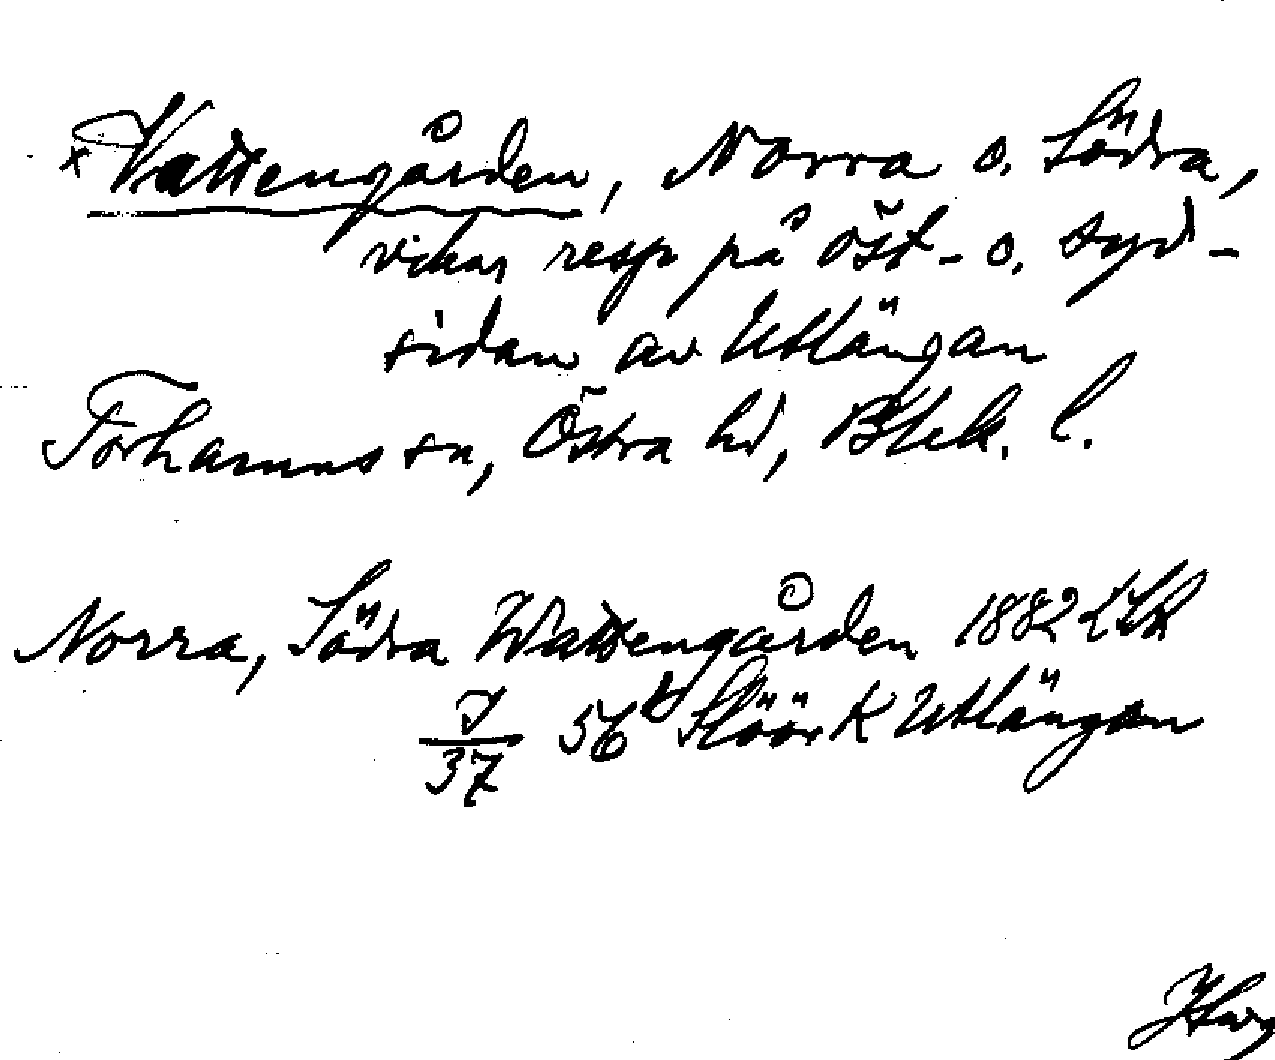 x Vattengården, Norra o. Södra,
vikar resp på öst- o. syd-
sidan av Utlängan
Torhamns sn, Östra hd, Blek. l.
Norra, Södra Wattengården 1882
J/37 56b K Utlängan